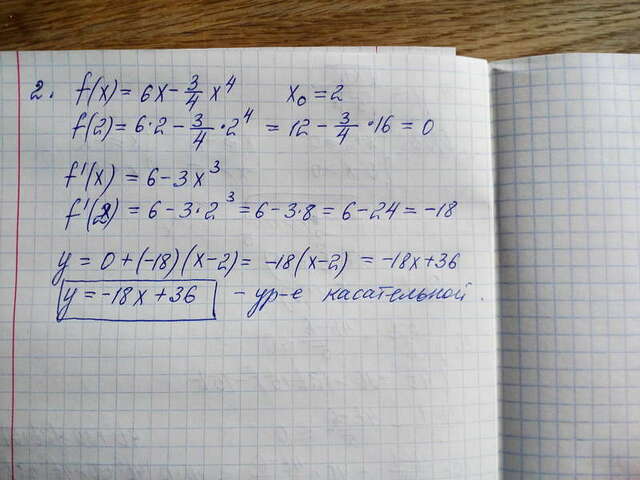 2. f(x) = 6x - 3/4 x⁴ x₀ = 2
f(2) = 6·2 - 3/4 · 2⁴ = 12 - 3/4 · 16 = 0
f'(x) = 6 - 3x³
f'(2) = 6 - 3·2³ = 6 - 3·8 = 6 - 24 = -18
y = 0 + (-18)(x-2) = -18(x-2) = -18x+36
y = -18x + 36 - ур-е касательной.